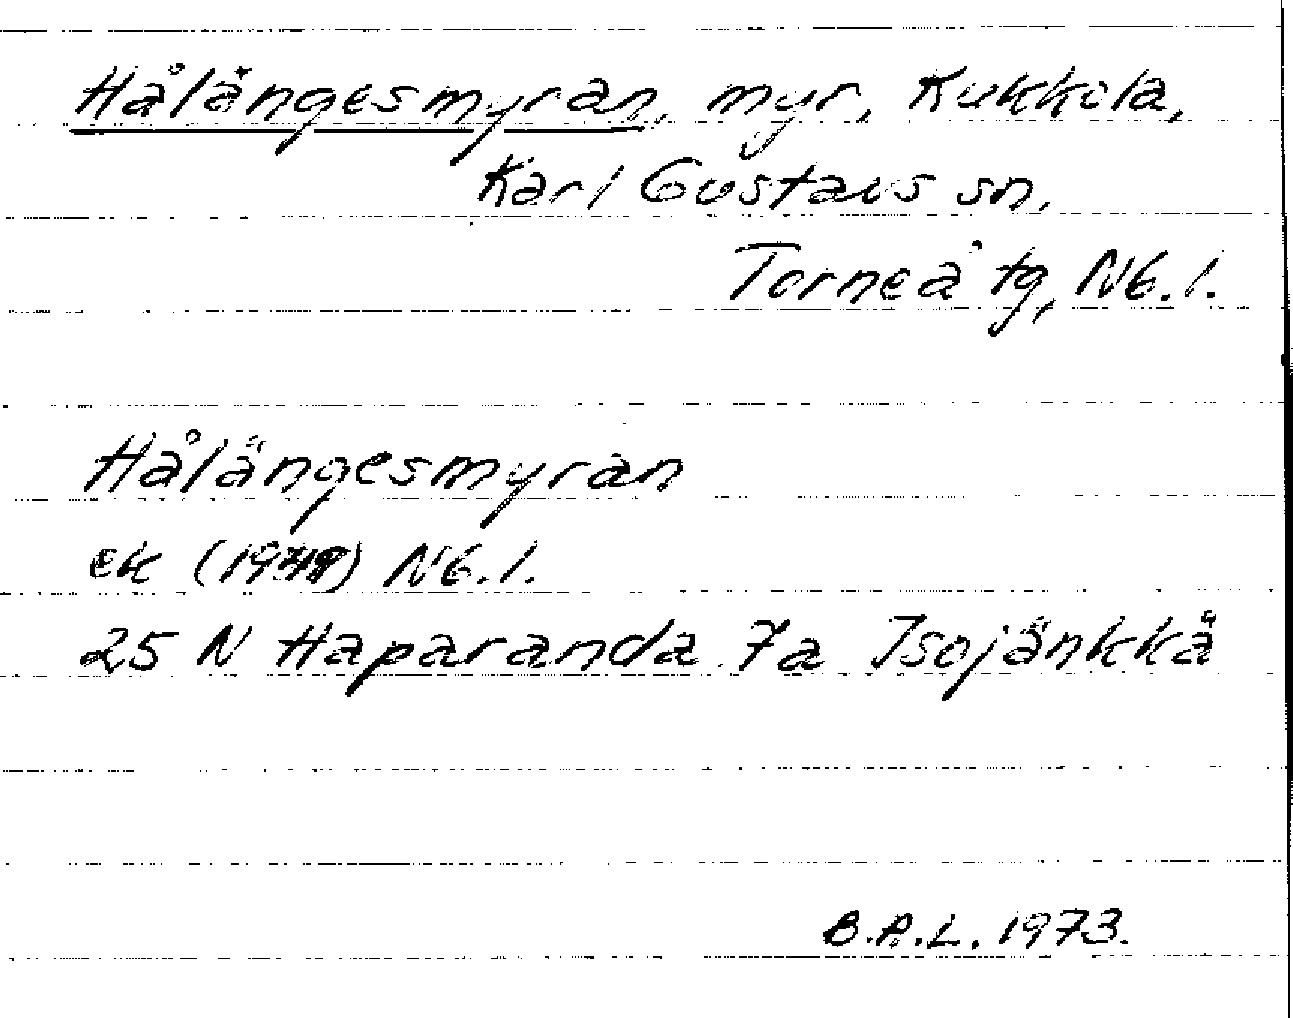 Hålängesmyran, myr, Kukkola,
Karl Gustavs sn,
Torneå tg, Nb. l.
Hålängesmyran
ek Nb. l.
25 N Haparanda 7a Isojänkkä
B.A.L. 1973.